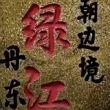 朝边境
绿江
丹东